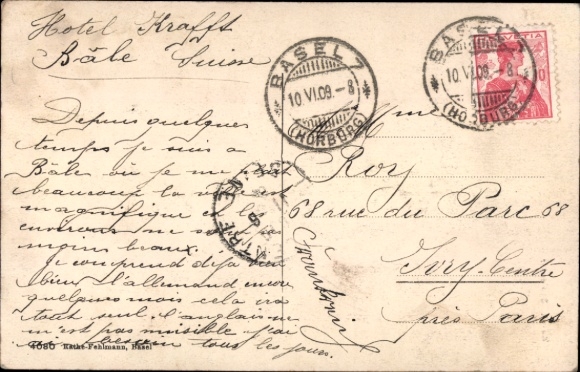 Hotel Krafft
Bâle Suisse
Depuis quelques
temps je suis a
Bâle où je me plait
beaucoup la vue est
magnifique
environs me
moins beaux.
je comprend déjà
bien l'allemand encore
quelques mois cela ira
tout seul. l'anglais ne
m'est pas nuisible j'ai
besoin tous les jours.
4080 Käthe-Fehlmann, Basel
BASEL 7
10.VI.09.-8
(HORBURG)
BASEL 7
10.VI.09.-8
(HORBURG)
HELVETIA
10
Mme
Roy
68 rue du Parc 68
Ivry-Centre
près Paris